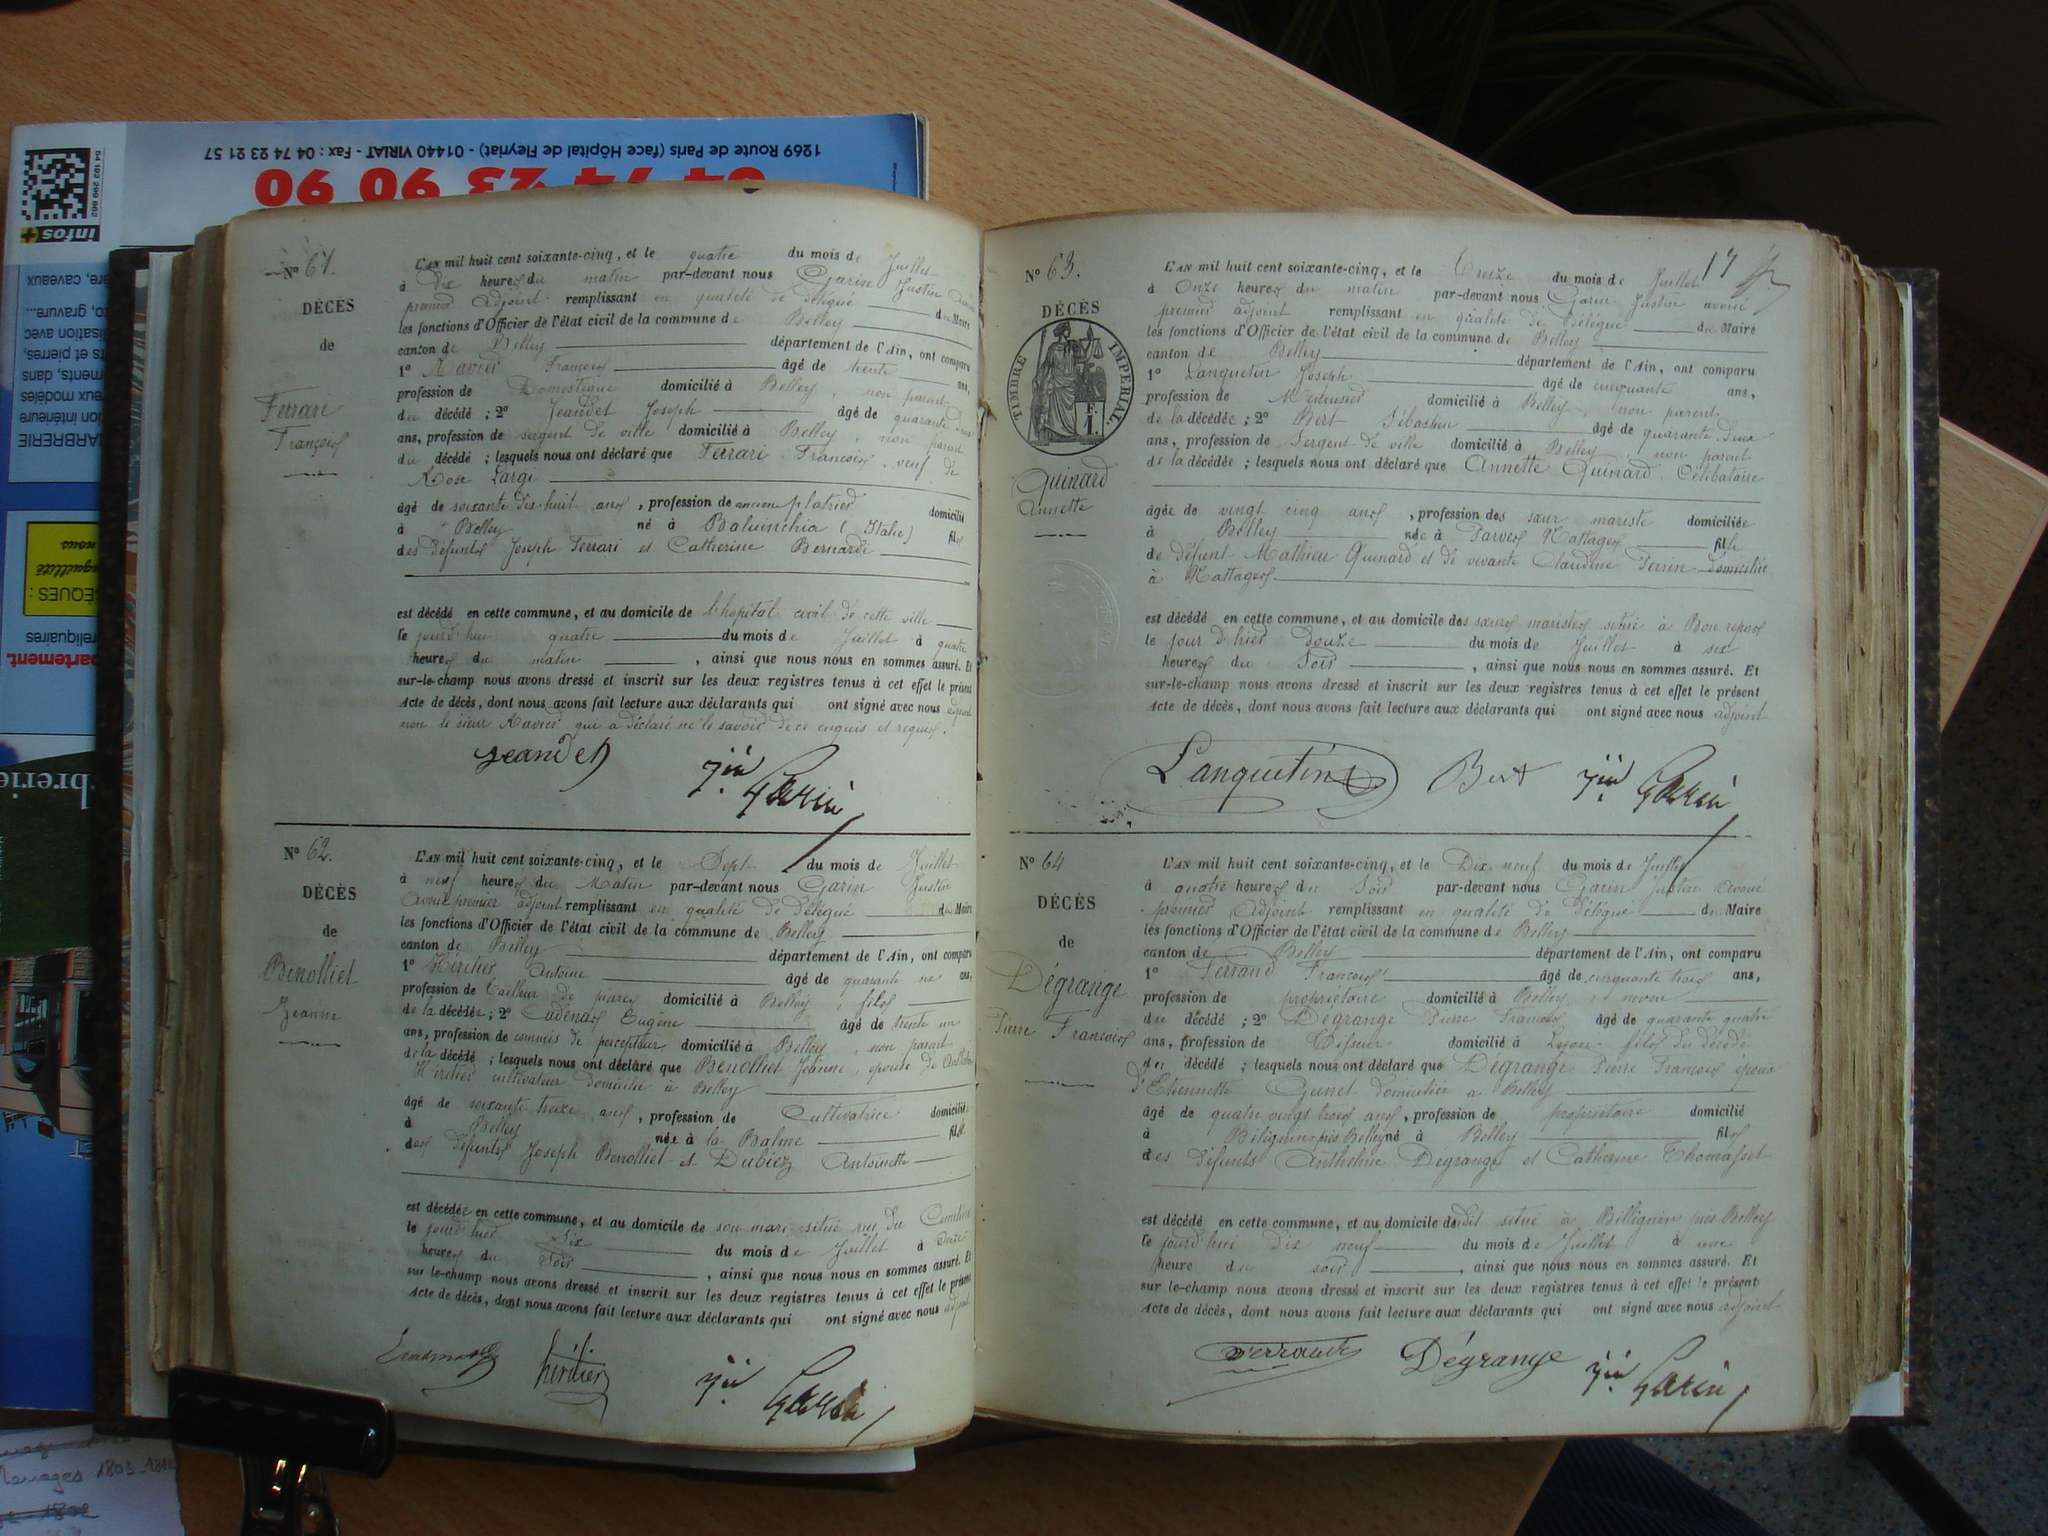 1269 Route de Paris (face Hôpital de Fleyriat) - 01440 VIRIAT - Fax : 04 74 23 21 57
04 74 23 90 90
infos+
N° 61.
DÉCÈS
de
Ferrari
François
L'AN mil huit cent soixante-cinq, et le quatre du mois de Juillet
à dix heures du matin par-devant nous Garin Justin
premier adjoint remplissant en qualité de délégué du Maire
les fonctions d'Officier de l'état civil de la commune de Belley
canton de Belley département de l'Ain, ont comparu
1° François âgé de trente ans,
profession de Domestique domicilié à Belley, non parent
du décédé ; 2° Jeandet Joseph âgé de quarante
ans, profession de sergent de ville domicilié à Belley, non parent
du décédé ; lesquels nous ont déclaré que Ferrari François, veuf de
Rose Largi
âgé de soixante dix huit ans, profession de ancien platrier domicilié
à Belley né à (Italie) fils
des défunts Joseph Ferrari et Catherine Bernardi
est décédé en cette commune, et au domicile de l'hopital civil de cette ville
le jourd'hui quatre du mois de Juillet à quatre
heures du matin, ainsi que nous nous en sommes assuré. Et
sur-le-champ nous avons dressé et inscrit sur les deux registres tenus à cet effet le présent
Acte de décès, dont nous avons fait lecture aux déclarants qui ont signé avec nous adjoint
non le sieur qui a déclaré ne le savoir de ce enquis et requis.
Jeandet Jin Garin
N° 62.
DÉCÈS
de
Benolliet
Jeanne
L'AN mil huit cent soixante-cinq, et le Sept du mois de Juillet
à neuf heures du Matin par-devant nous Garin Justin
avoué premier adjoint remplissant en qualité de délégué du Maire
les fonctions d'Officier de l'état civil de la commune de Belley
canton de Belley département de l'Ain, ont comparu
1° Héritier Antoine âgé de quarante ans,
profession de tailleur de pierres domicilié à Belley, fils
de la décédée ; 2° Cadenas Eugène âgé de trente un
ans, profession de commis de percepteur domicilié à Belley, non parent
de la décédé ; lesquels nous ont déclaré que Benolliet Jeanne, épouse de
Héritier cultivateur domicilié à Belley
âgé de soixante treize ans, profession de Cultivatrice domiciliée
à Belley née à la Balme fille
des défunts Joseph Benolliet et Dubiez Antoinette
est décédée en cette commune, et au domicile de son mari situé rue du
le jourd'hier Six du mois de Juillet à onze
heures du Soir, ainsi que nous nous en sommes assuré. Et
sur le-champ nous avons dressé et inscrit sur les deux registres tenus à cet effet le présent
Acte de décès, dont nous avons fait lecture aux déclarants qui ont signé avec nous adjoint
héritier Jin Garin
17
N° 63.
DÉCÈS
TIMBRE IMPERIAL
Quinard
Annette
L'AN mil huit cent soixante-cinq, et le Treize du mois de Juillet
à Onze heures du matin par-devant nous Garin Justin avoué
premier adjoint remplissant en qualité de Délégué du Maire
les fonctions d'Officier de l'état civil de la commune de Belley
canton de Belley département de l'Ain, ont comparu
1° Lanquetin Joseph âgé de cinquante ans,
profession de Menuisier domicilié à Belley, non parent
de la décédée ; 2° Bert Sébastien âgé de quarante deux
ans, profession de Sergent de ville domicilié à Belley, non parent
de la décédée ; lesquels nous ont déclaré que Annette Quinard Célibataire
âgée de vingt cinq ans, profession des sœur mariste domiciliée
à Belley née à Parves Nattages fille
de défunt Mathieu Quinard et de vivante Claudine Perrin domiciliée
à Nattages
est décédé en cette commune, et au domicile des sœurs maristes situé à Bon repos
le jour d'hier Douze du mois de Juillet à six
heures du Soir, ainsi que nous nous en sommes assuré. Et
sur-le-champ nous avons dressé et inscrit sur les deux registres tenus à cet effet le présent
Acte de décès, dont nous avons fait lecture aux déclarants qui ont signé avec nous adjoint
Lanquetin Bert Jin Garin
N° 64
DÉCÈS
de
Dégrange
Pierre François
L'AN mil huit cent soixante-cinq, et le Dix neuf du mois de Juillet
à quatre heures du Soir par-devant nous Garin Justin avoué
premier adjoint remplissant en qualité de délégué du Maire
les fonctions d'Officier de l'état civil de la commune de Belley
canton de Belley département de l'Ain, ont comparu
1° Ferrand François âgé de cinquante trois ans,
profession de propriétaire domicilié à Belley, neveu
du décédé ; 2° Dégrange Pierre François âgé de quarante quatre
ans, profession de domicilié à Lyon fils du décédé
du décédé ; lesquels nous ont déclaré que Dégrange Pierre François époux
d'Etiennette domiciliée a Belley
âgé de quatre vingt trois ans, profession de propriétaire domicilié
à Bilignin près Belley né à Belley fils
des défunts Anthelme Dégrange et Catherine Thomasset
est décédé en cette commune, et au domicile dudit situé à Billignin près Belley
le jourd'hui Dix neuf du mois de Juillet à une
heure du soir, ainsi que nous nous en sommes assuré. Et
sur le-champ nous avons dressé et inscrit sur les deux registres tenus à cet effet le présent
Acte de décès, dont nous avons fait lecture aux déclarants qui ont signé avec nous adjoint
Ferrand Dégrange Jin Garin
Mariages 1803-
1802